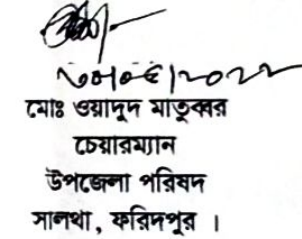 ৩০/০৫/২০২২
মোঃ ওয়াদুদ মাতুব্বর
চেয়ারম্যান
উপজেলা পরিষদ
সালথা, ফরিদপুর ।